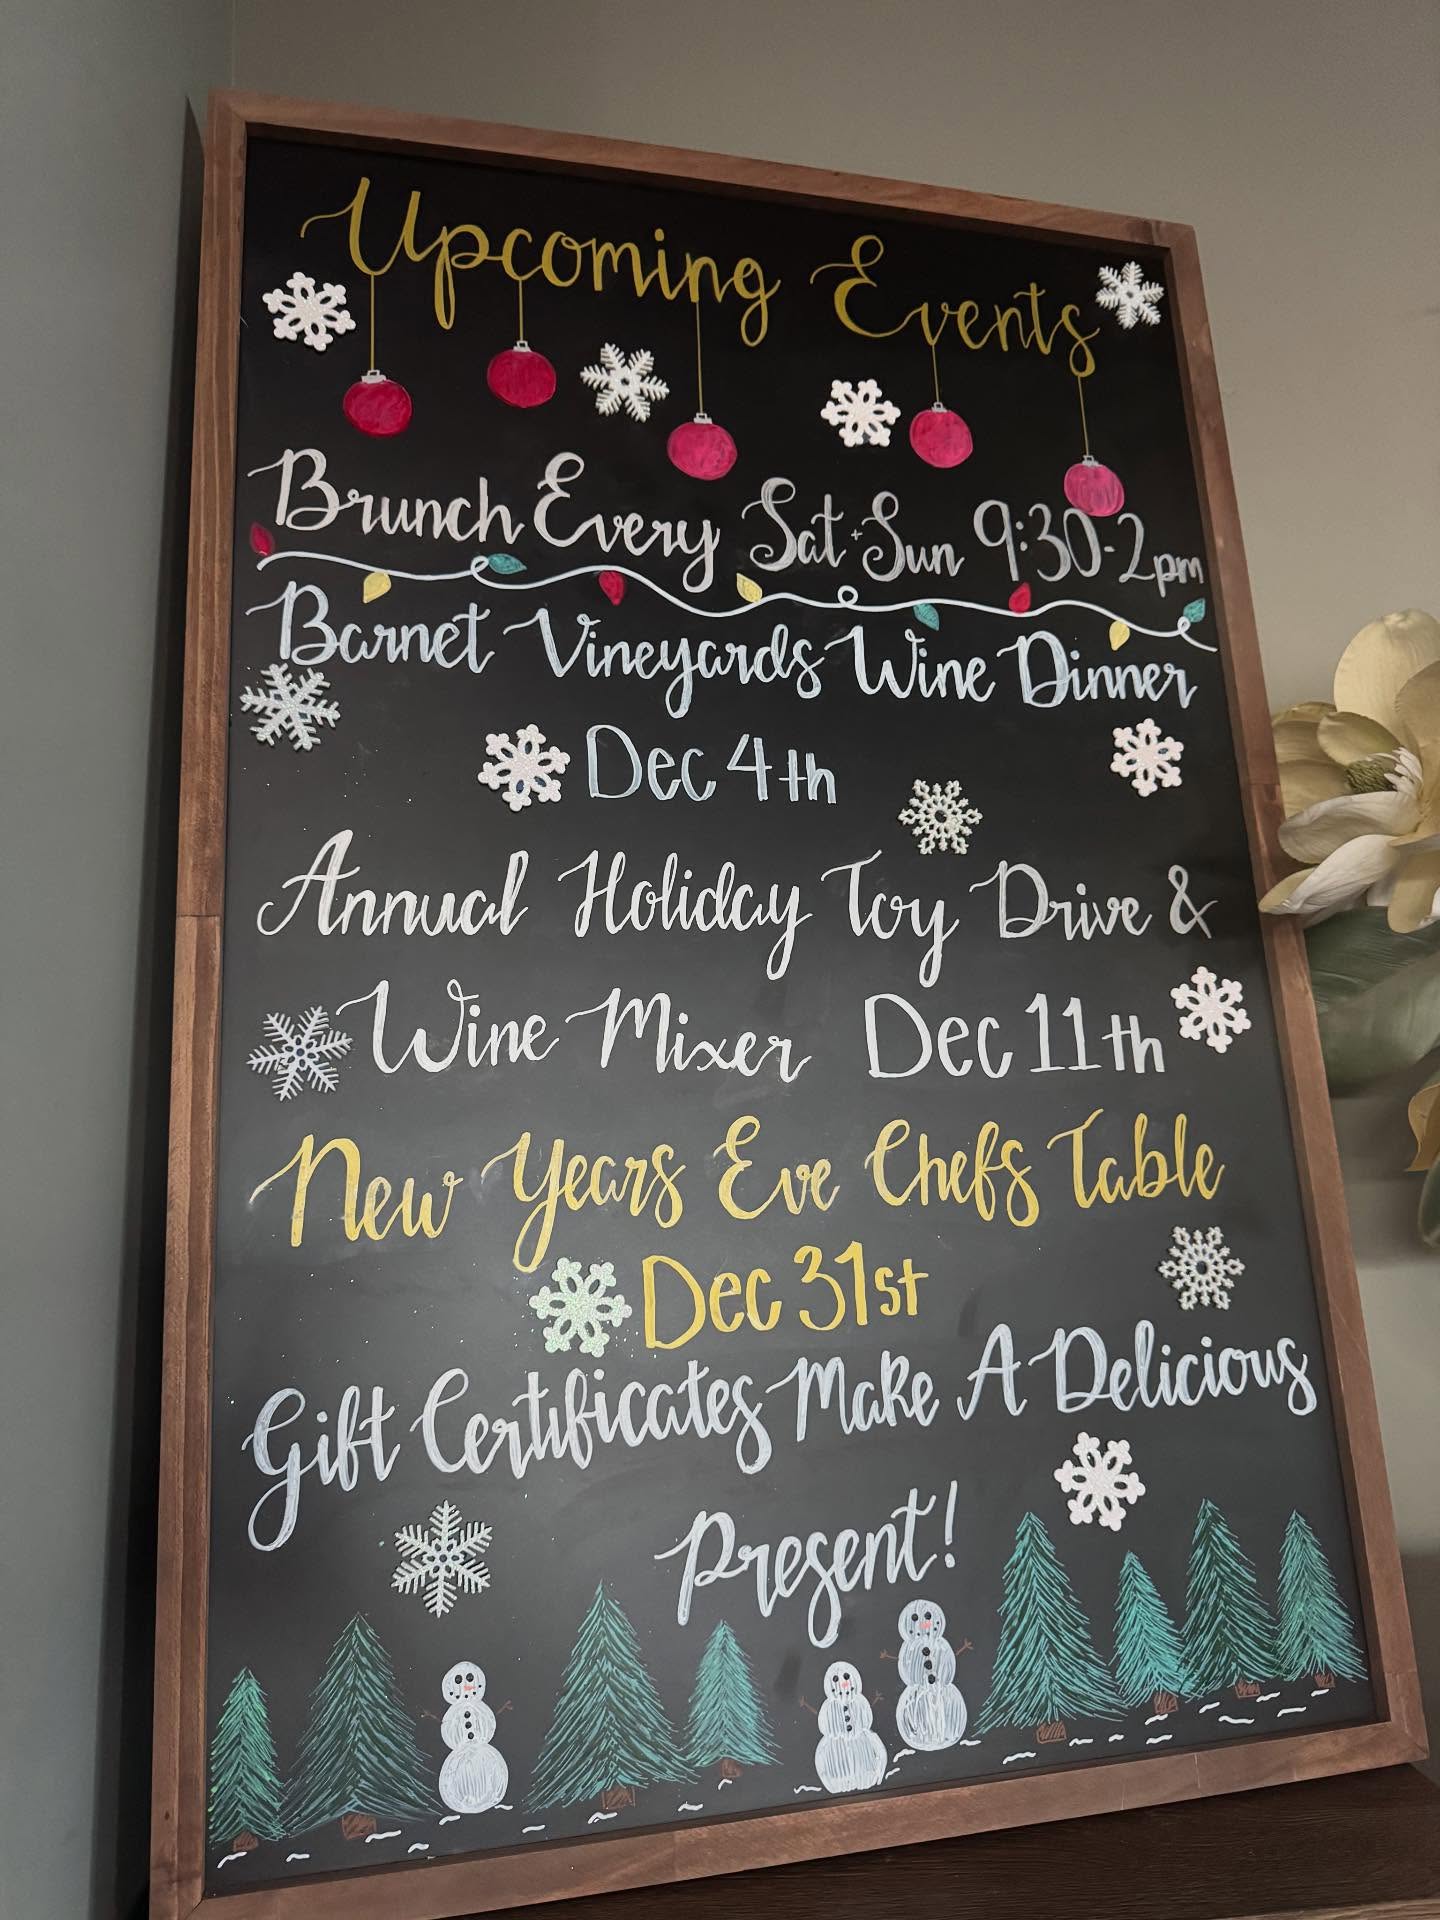 Upcoming Events
Brunch Every Sat + Sun 9:30-2pm
Barnet Vineyards Wine Dinner
Dec 4th
Annual Holiday Toy Drive &
Wine Mixer Dec 11th
New Years Eve Chefs Table
Dec 31st
Gift Certificates Make A Delicious
Present!